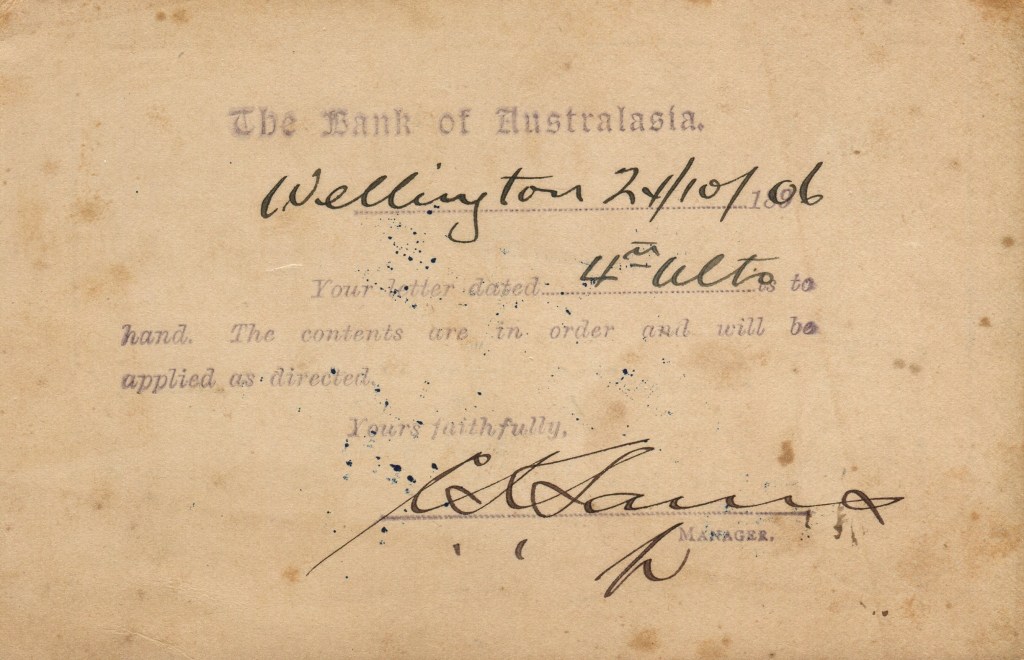 The Bank of Australasia.
Wellington 24/10/ 189 06
Your letter dated 4th Ulto is to
hand. The contents are in order and will be
applied as directed.
Yours faithfully,
MANAGER.